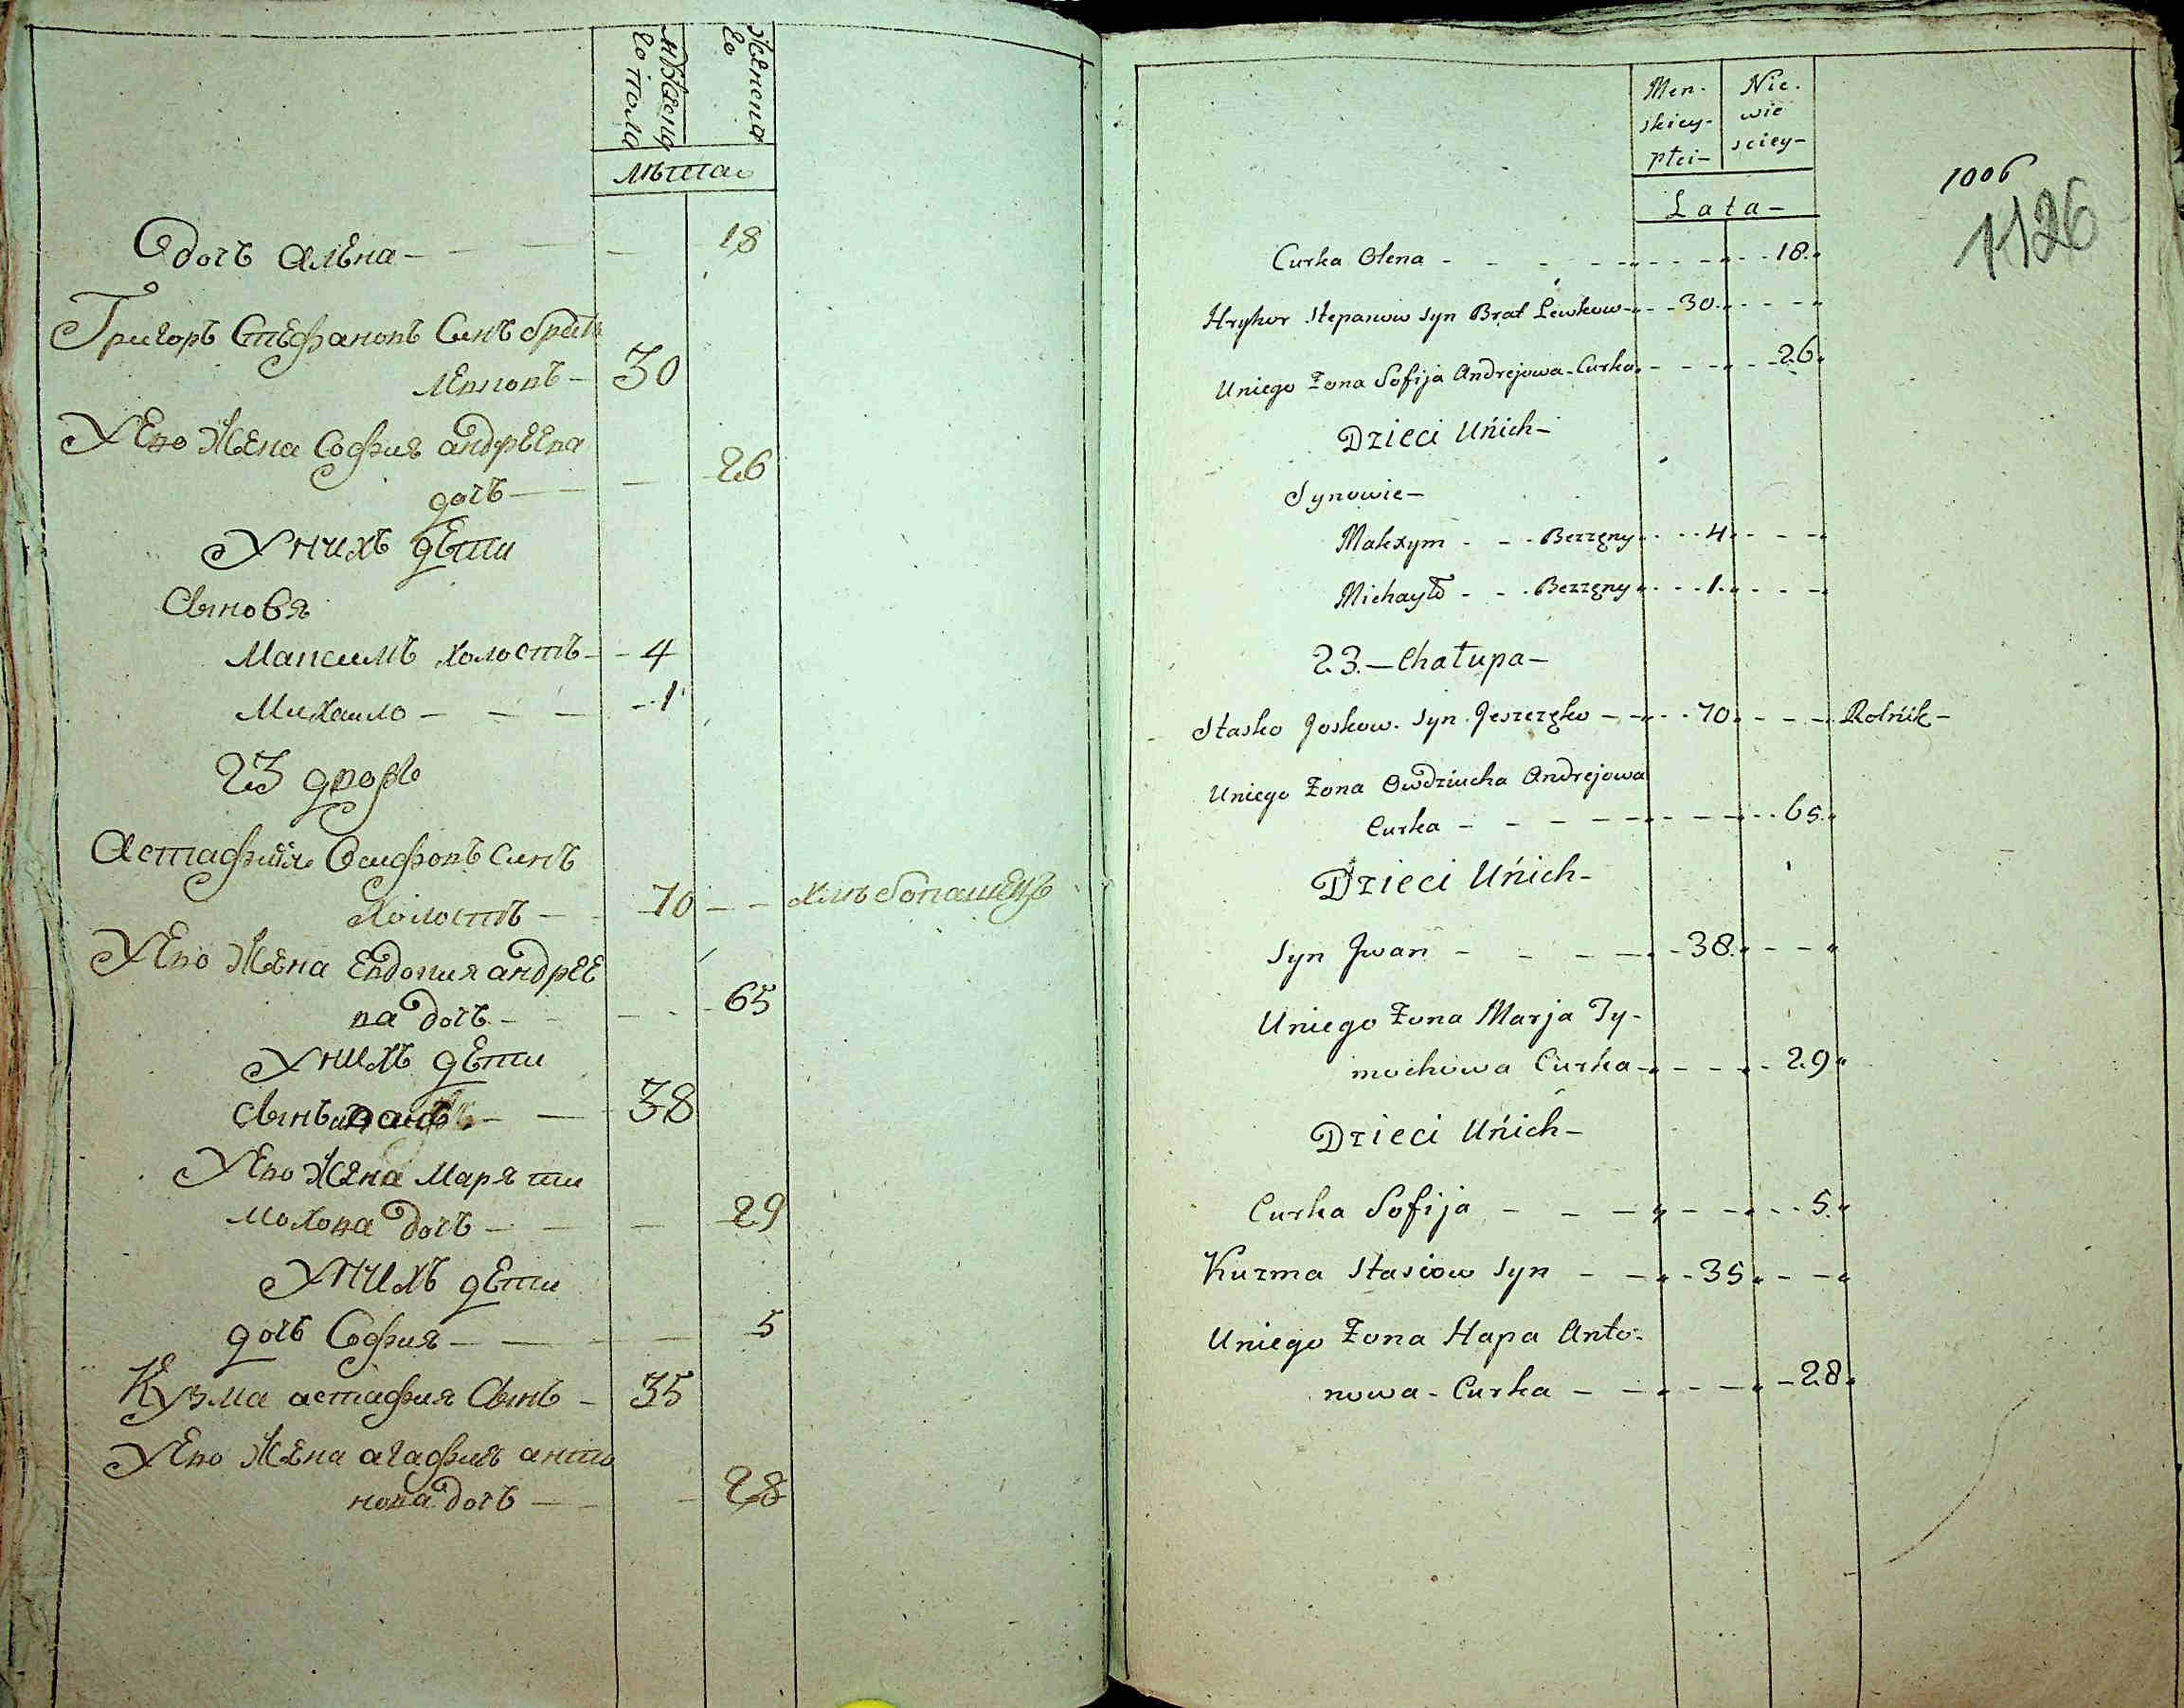 мужеска
го пола
женска
го
лѣта
дочь алена 18
Григорь Стефановъ Синъ братъ
левковъ 30
У Ево Жена София андреева
дочь 26
У нихъ дети
Сыновя
Максимъ холостъ 4
Михаило 1
23 дворъ
Астафия Осифовъ Синъ
Холостъ 70 хлѣбопашецъ
У Ево Жена Евдокия андрее
ва дочь 65
У нихъ дети
Сынъ 38
У Ево Жена Маря ти
мохова дочь 29
У нихъ дети
дочь София 5
Кузма астафия Сынъ 35
У Ево Жена агафия анто
нова дочь 28
Men-
skiey-
płci-
Nie-
wie
sciey-
Lata-
1006
1126
Curka Olena 18
Hryhor Stepanow Syn Brat Lewkow 30
Uniego Żona Sofija Andrejowa Curka 26
Dzieci Unich-
Synowie-
Maksym Bezzęny 4
Michayło Bezzęny 1
23. Chałupa-
Stasko Joskow Syn Jeszczęko 70 Rolnik-
Uniego Żona Owdziucha Andrejowa
Curka 65
Dzieci Unich-
Syn Jwan 38
Uniego Żona Marja Ty-
mochowa Curka 29
Dzieci Unich-
Curka Sofija 5
Kuzma Stasiow Syn 35
Uniego Żona Hapa Anto-
nowa Curka 28